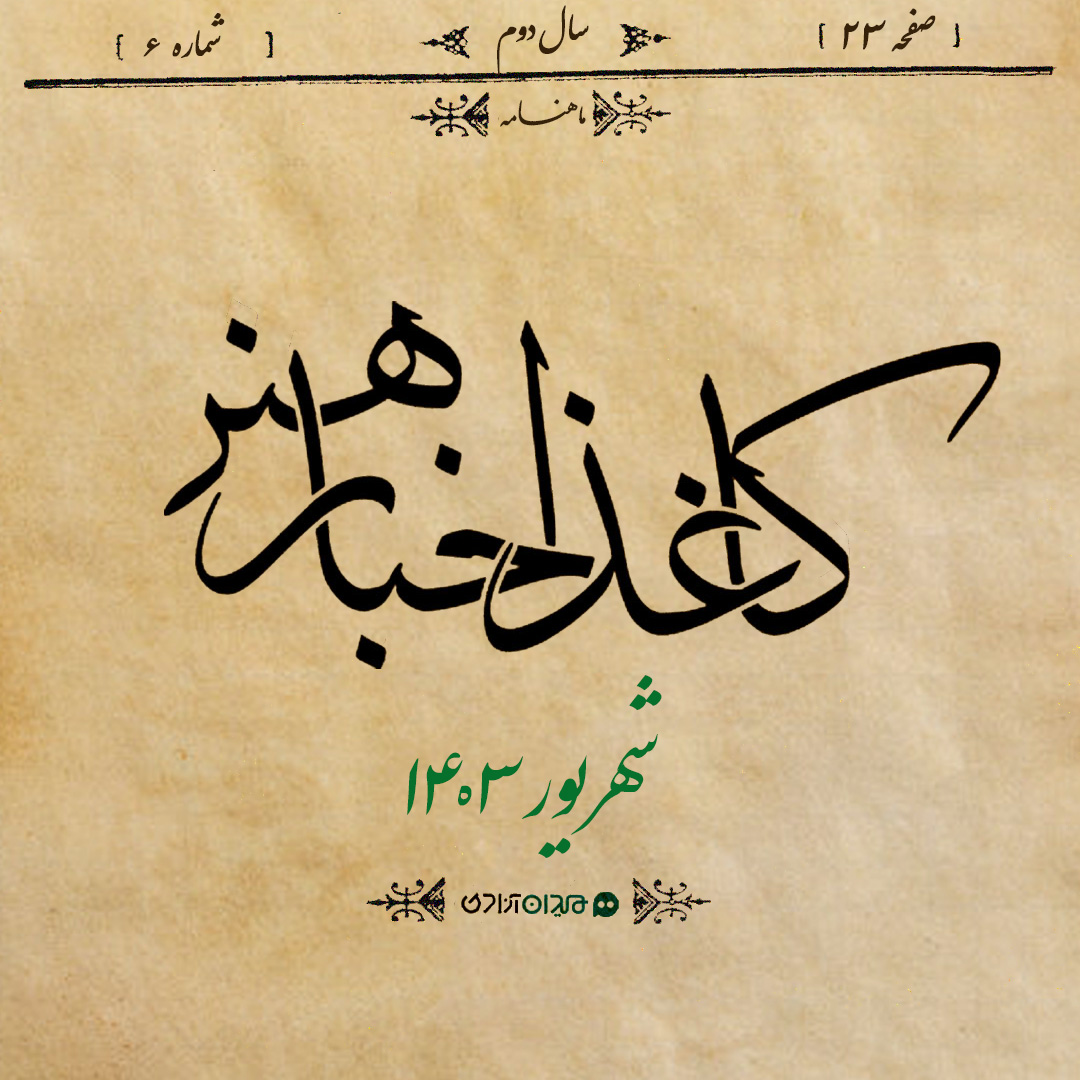 صفحه ۲۳ سال دوم شماره ۶
ماهنامه
کاغذ اخبار هنر
شهریور ۱۴۰۳
میدان آزادی